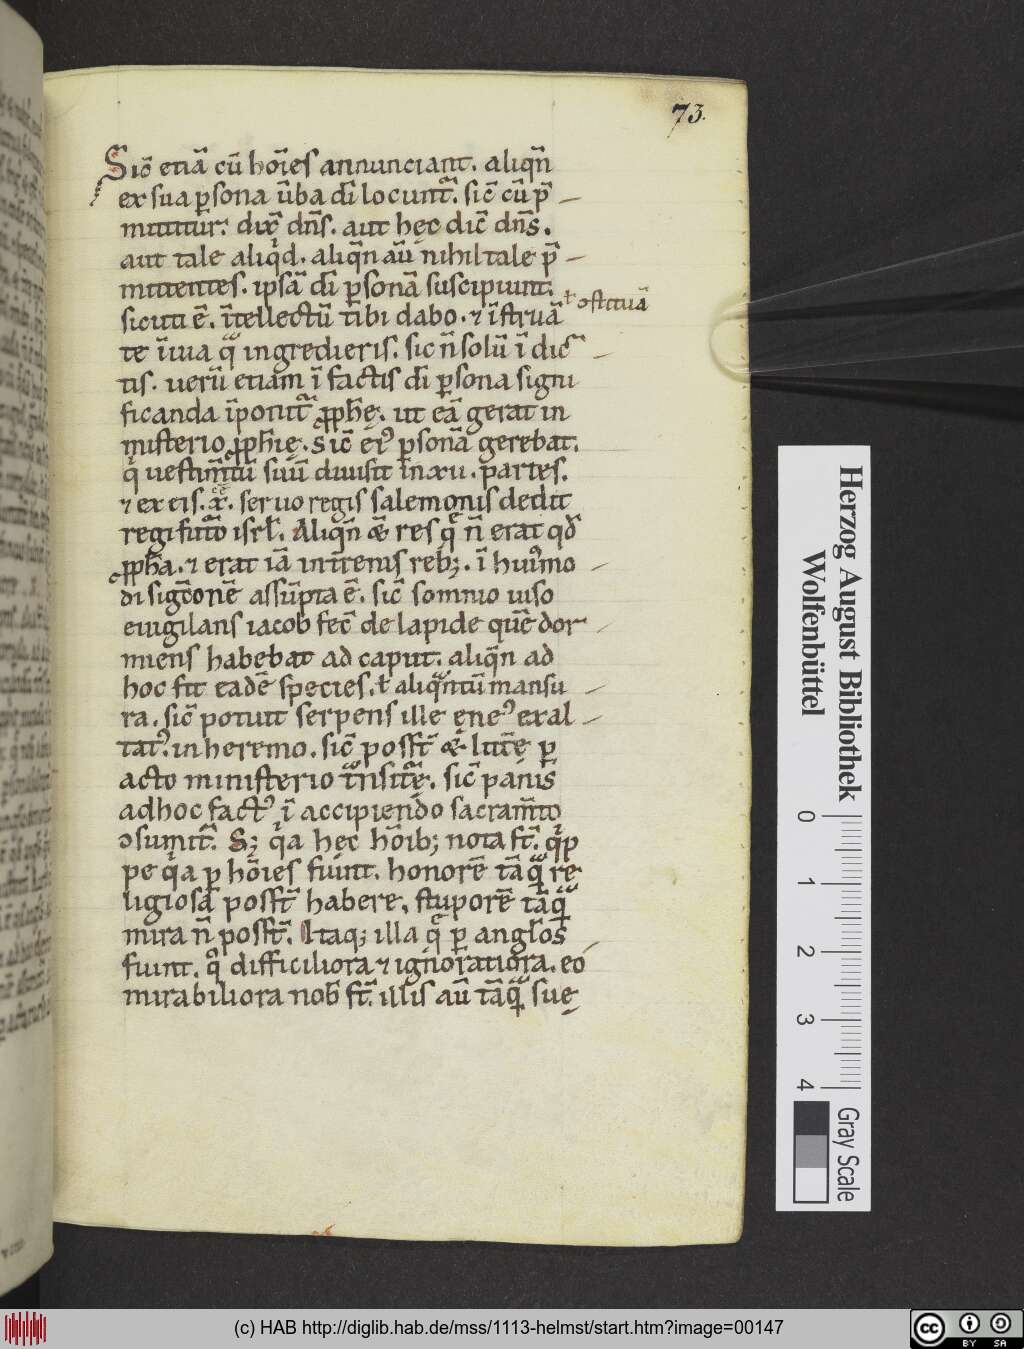 73.
Sic̄ etiā cū hōies annunciant. aliqn̄
ex sua ꝑsona ūba dī locunt᷑. sic̄ cū p̄
mittitur. dix̄ dn̄s. aut hęc dic̄ dn̄s.
aut tale aliqͥd. aliqn̄ aū nihil tale p̄
mittentes. ipsā dī ꝑsonā suscipiunt.
ł ꝯstituā
sicuti ē. ītellectū tibi dabo. ⁊ īstruā
te ī uia qͣ ingredieris. sic n̄ solū ī dic
tis. uerū etiam ī factis dī ꝑsona signi
ficanda īponit᷑ ꝓph̄ę. ut eā gerat in
misterio ꝓph̄ię. Sic̄ eiꝰ ꝑsonā gerebat.
qͥ uestim̄tū suū diuisit in xii. partes.
⁊ ex eis. x. seruo regis salemonis dedit
regi futo isrł. Aliqn̄ & res qͥ n̄ erat qđ
ꝓph̄a. ⁊ erat iā in tr̄enis reb;. ī huiꝰmo
di sigc̄onē assūpta ē. sic̄ somnio uiso
euigilans iacob fec̄ de lapide quē dor
miens habebat ad caput. aliqn̄ ad
hoc fit eadē species. ł aliqͣntū mansu
ra. sic̄ potuit serpens ille ęneꝰ exal
tatꝰ. in heremo. sic̄ posst᷑ & litt̄ę ꝑ
acto ministerio tͣnsitͣę. sic̄ panis
ad hoc factꝰ ī accipiendo sacram̄to
ꝯsumit᷑. S; qͥa hęc hōib; nota st᷑. qͥp
pe qͥa ꝑ hōies fiunt. honorē tāqͣ re
ligiosa posst᷑ habere. stuporē tāqͣ
mira n̄ posst᷑. Itaq; illa qͥ ꝑ angłos
fiunt. qͦ difficiliora ⁊ ignoratiora. eo
mirabiliora nob̄ st᷑. illis aū tāqͣ suę
Herzog August Bibliothek
Wolfenbüttel
0 1 2 3 4
Gray Scale
(c) HAB http://diglib.hab.de/mss/1113-helmst/start.htm?image=00147
cc BY SA